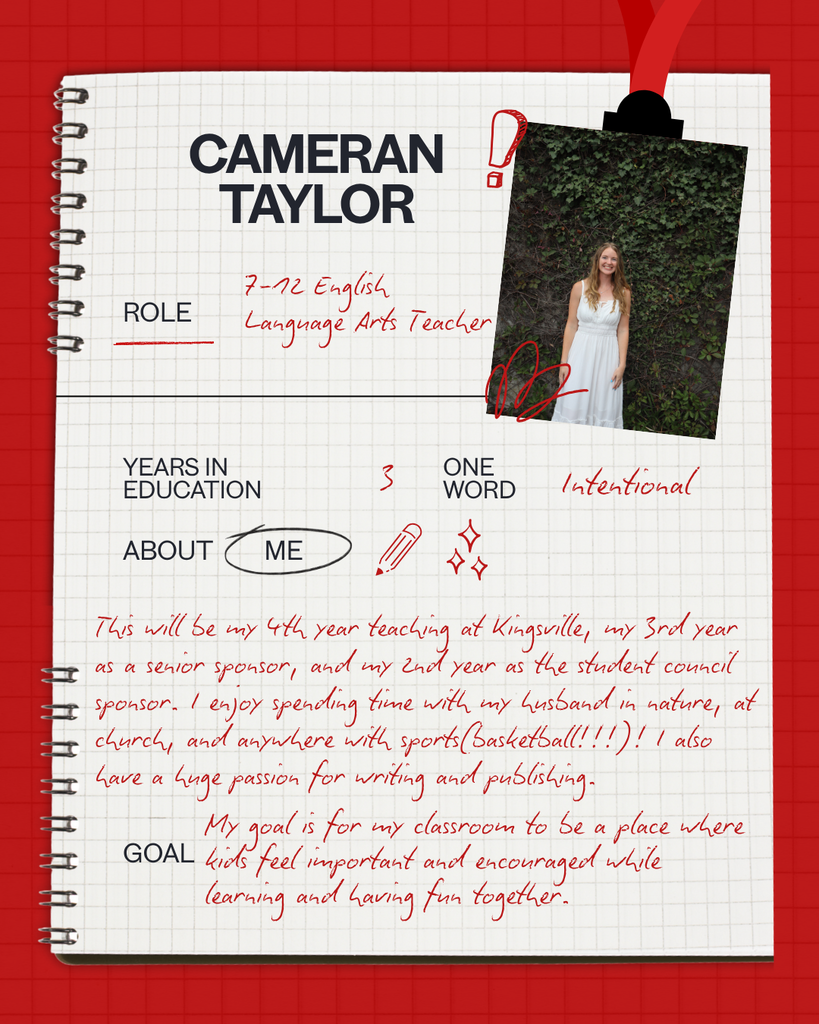 CAMERAN
TAYLOR
ROLE
7-12 English
Language Arts Teacher
YEARS IN
EDUCATION
3
ONE
WORD
Intentional
ABOUT ME
This will be my 4th year teaching at Kingsville, my 3rd year
as a senior sponsor, and my 2nd year as the student council
sponsor. I enjoy spending time with my husband in nature, at
church, and anywhere with sports(basketball!!!)! I also
have a huge passion for writing and publishing.
GOAL
My goal is for my classroom to be a place where
kids feel important and encouraged while
learning and having fun together.